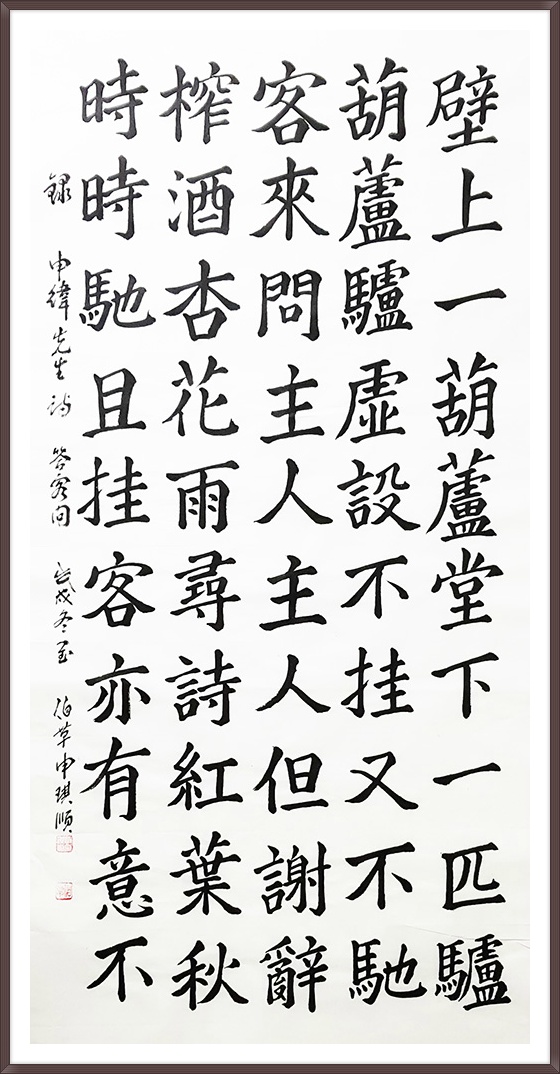 壁上一葫蘆堂下一匹驢
葫蘆驢虛設不挂又不馳
客來問主人主人但謝辭
榨酒杏花雨尋詩紅葉秋
時時馳且挂客亦有意不
録 申緯先生詩 答客问 戊戌冬至 伯草申琪順